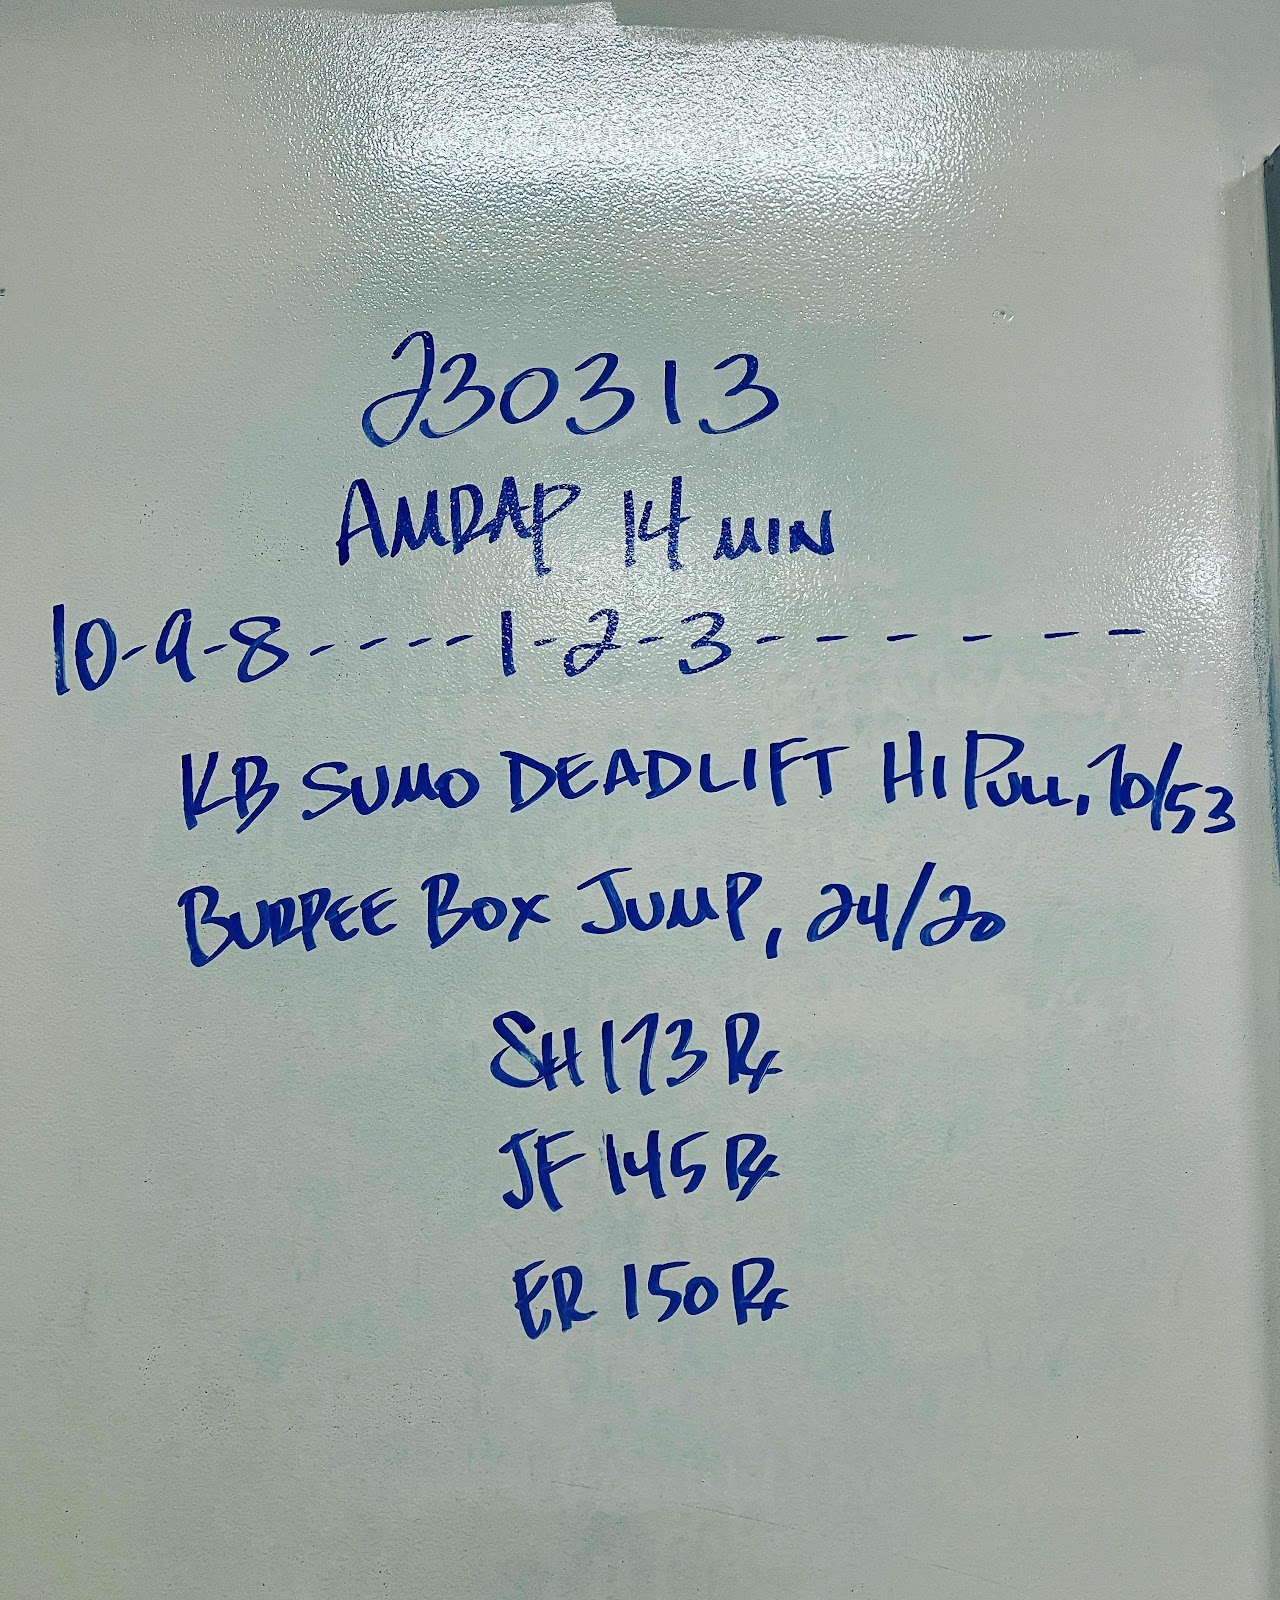 230313
AMRAP 14 MIN
10-9-8----1-2-3------
KB SUMO DEADLIFT HI PULL, 70/53
BURPEE BOX JUMP, 24/20
SH 173 Rx
JF 145 Rx
ER 150 Rx